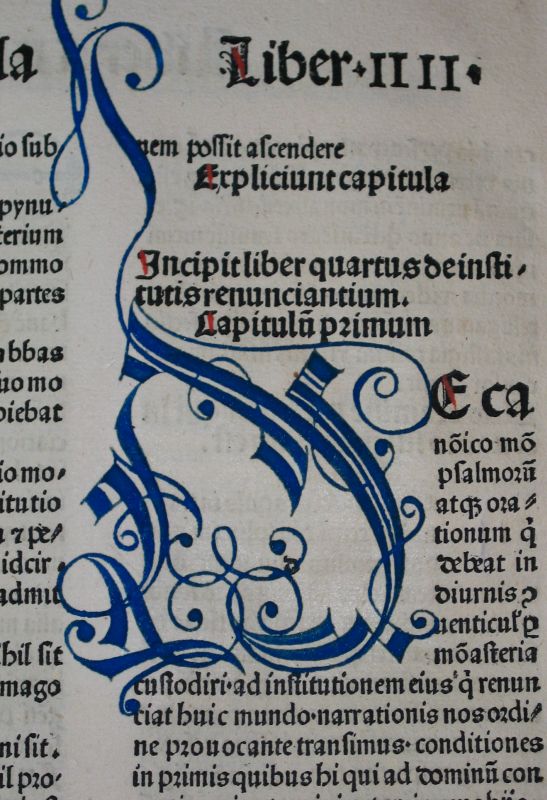 la
io sub
pynu⸗
terium
ommo
partes
abbas
uo mo
biebat
io mo⸗
titutio
a ⁊ pe⸗
idcir⸗
admit
hil sit
mago
ni sit.
il pro⸗
Liber·IIII·
nem possit ascendere
Expliciunt capitula
Incipit liber quartus de insti⸗
tutis renunciantium.
Capitulū primum
DE ca
nōico mō
psalmorū
atqꝫ ora⸗
tionum q̄
debeat in
diurnis ꝯ
uenticul'ꝑ
mōasteria
custodiri·ad institutionem eius q̄ renun
tiat huic mundo·narrationis nos ordi⸗
ne prouocante transimus·conditiones
in primis quibus hi qui ad dominū con